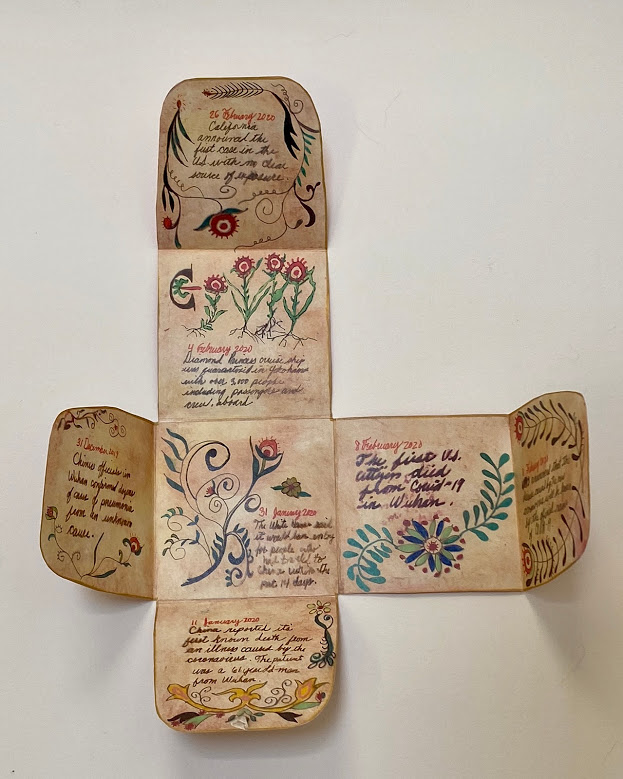 26 February 2020
California
announced the
first case in the
US with no clear
source of exposure.
4 February 2020
Diamond Princess cruise ship
was quarantined in Yokohama
with over 3,000 people
including passengers and
crew, aboard
31 December 2019
Chinese officials in
Wuhan confirmed dozens
of cases of pneumonia
from an unknown
cause.
31 January 2020
The White House said
it would ban entry
for people who
had traveled to
China within the
past 14 days.
8 February 2020
The first US.
citizen died
from Covid-19
in Wuhan.
11 January 2020
China reported its
first known death from
an illness caused by the
coronavirus. The patient
was a 61 year old man
from Wuhan.